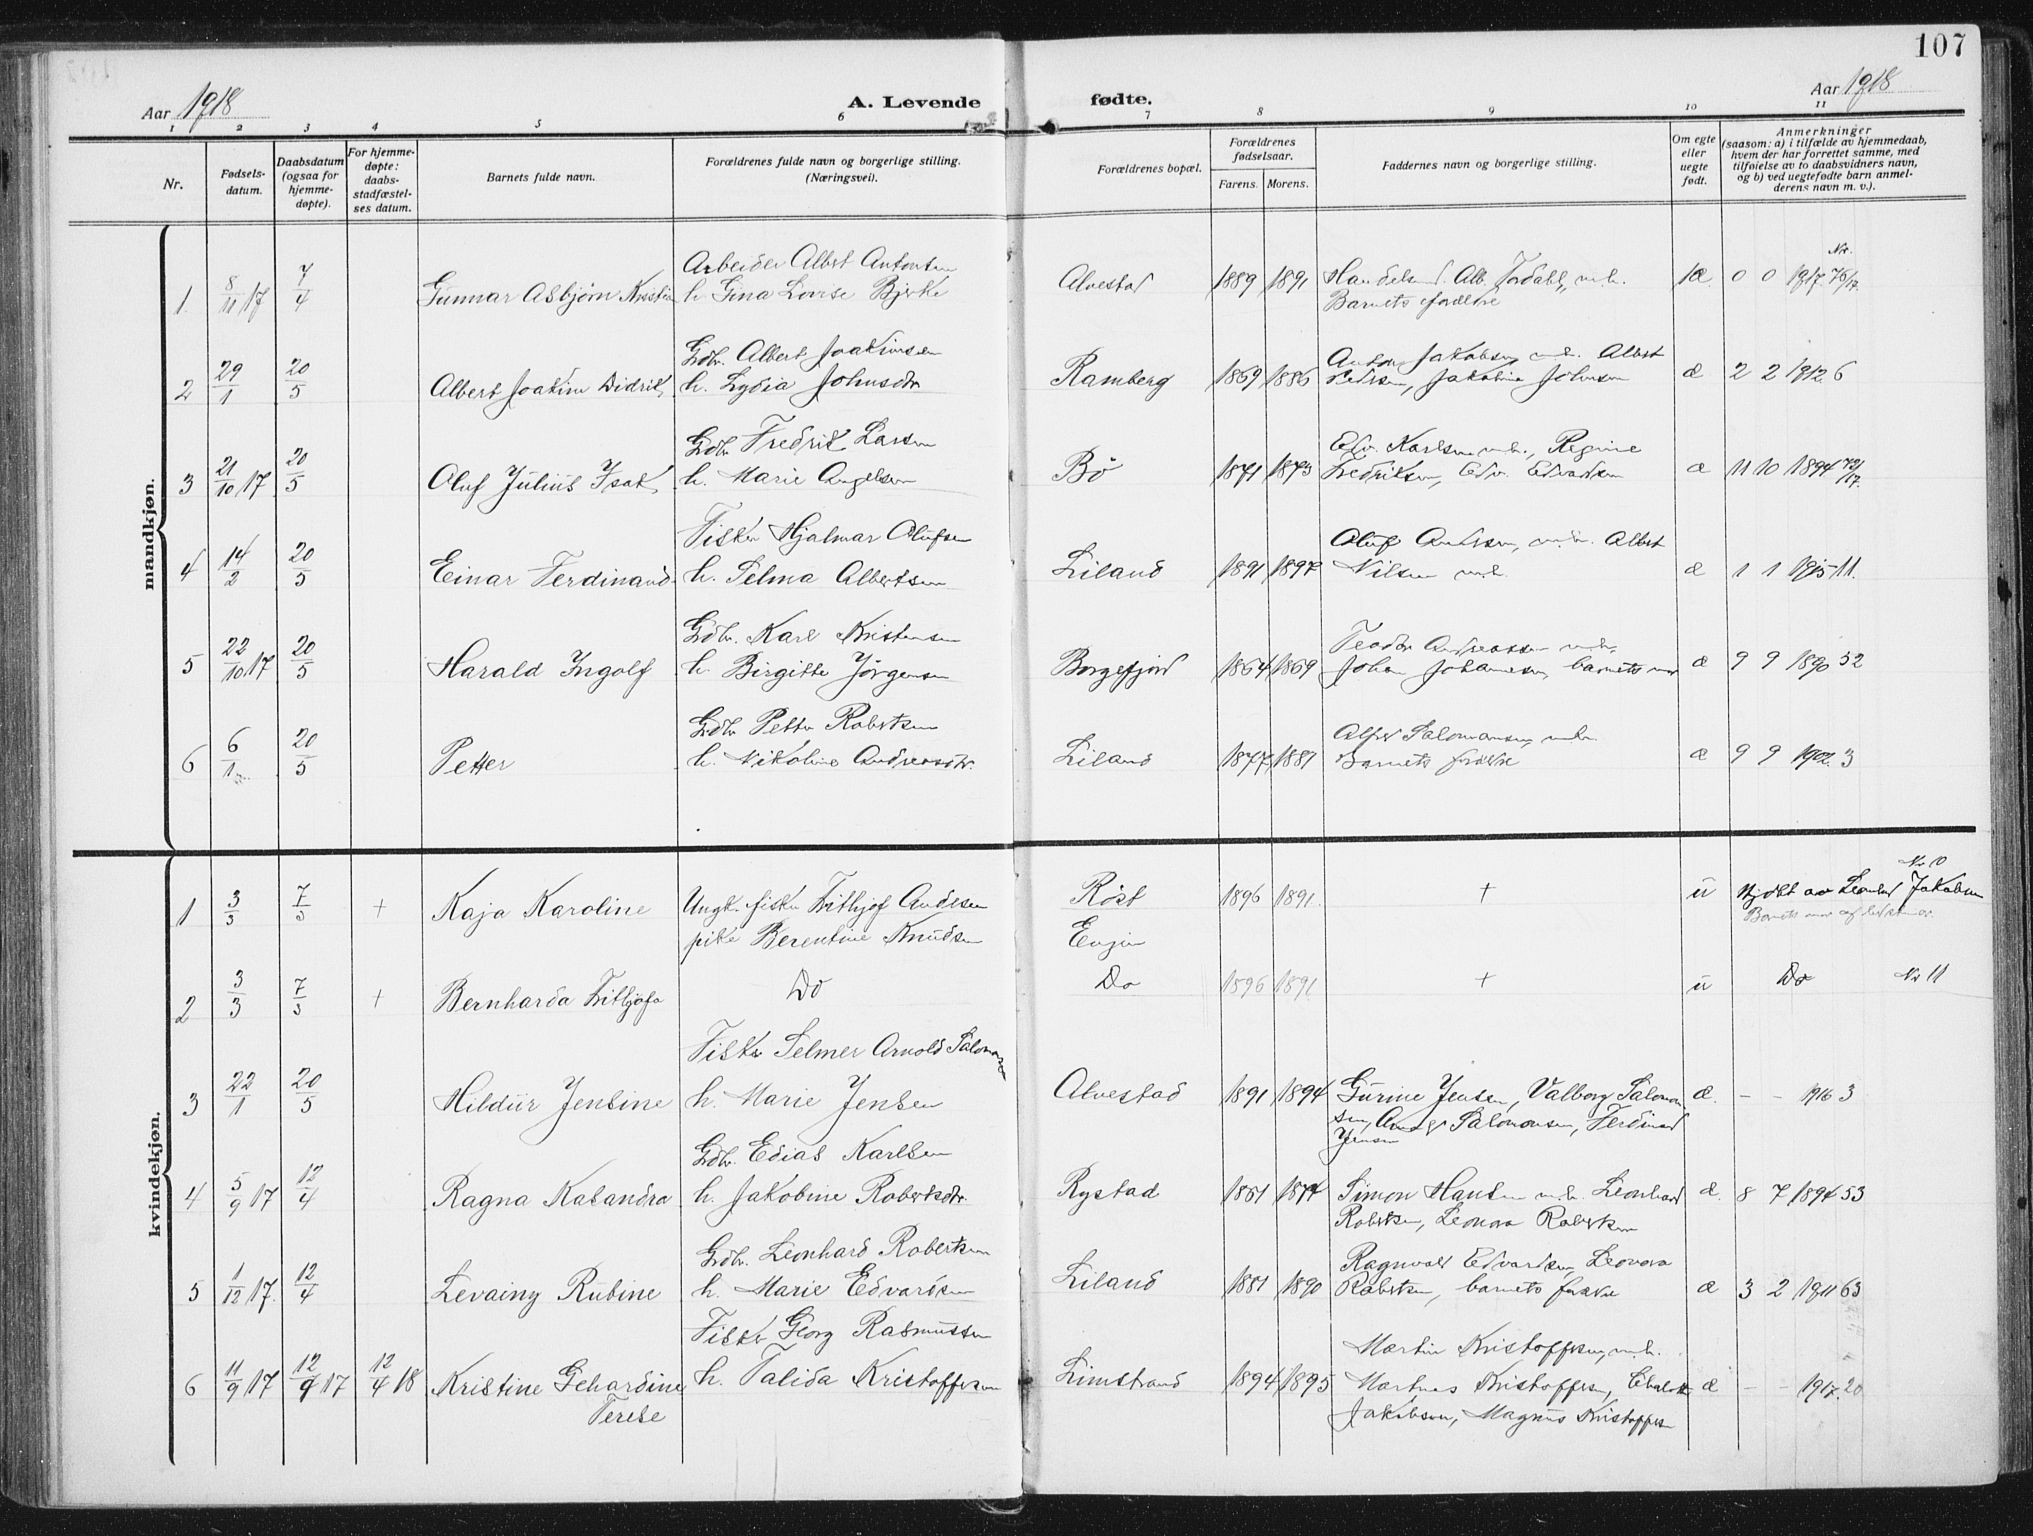 107
Aar 1918
A. Levende fødte.
Aar 1918
1 2 3 4 5 6 7 8 9 10 11
Nr.
Fødsels-
datum.
Daabsdatum
(ogsaa for
hjemme-
døpte).
For hjemme-
døpte:
daabs-
stadfæstel-
ses datum.
Barnets fulde navn.
Forældrenes fulde navn og borgerlige stilling.
(Næringsvei).
Forældrenes bopæl.
Forældrenes
fødselsaar.
Farens. Morens.
Faddernes navn og borgerlige stilling.
Om egte
eller
uegte
født.
Anmerkninger
(saasom: a) i tilfælde av hjemmedaab,
hvem der har forrettet samme, med
tilføielse av to daabsvidners navn,
og b) ved uegtefødte barn anmel-
derens navn m. v.).
mandkjøn.
Arbeider Albert Antonsen
Nr.
1 8/11 17 7/4 Gunnar Asbjørn Kristian h. Gina Lovise Bjerke Alvestad 1889 1891 Alb. m.h. æ 0 0 1917. 76/17.
Barnets forældre
Gdbr. Albert Joakimsen
Jakobsen m.h. Albert
2 29/1 20/5 Albert Joakim Didrik h. Lydia Johnsdtr Ramberg 1869 1886 Pedersen, Jakobine Johnsen æ 2 2 1912. 6
Gdbr. Fredrik Larsen
Edv. Karlsen m.h., Regine
3 21/10 17 20/5 Oluf Julius Isak h. Marie Angelsen Bö 1871 1873 Fredriksen, Edv. Edvardsen æ 11 10 1894 72/17.
Fisker Hjalmar Olufsen
Oluf Andersen, m.h. Albert
4 14/2 20/5 Einar Ferdinand h. Selma Albertsen Liland 1891 1897 Nilsen m.h. æ 1 1 1915 11.
Gdbr. Karl Kristensen
Teodor Andreassen m.h.
5 22/10 17 20/5 Harald Ingolf h. Birgitte Jørgensen Borgefjord 1864 1869 Johan Johannesen, barnets mor æ 9 9 1890 52
Gdbr Petter Robertsen
Alfred Salomonsen, m.h.
6 6/1 20/5 Petter h. Nikoline Andreasdtr. Liland 1877 1881 Barnets forældre æ 9 9 1902. 3
kvindekjøn.
Nr 10
1 3/3 7/3 + Kaja Karoline Ungk. fisker Frithjof Andersen Röst 1896 1891. + ü Hjdbt av Leonhard Jakobsen
pike Berentine Knudsen Evjen
2 3/3 7/3 + Bernharda Frithjofa Do Do 1896 1891 + ü Do Nr 11
Fisker Selmer Arnold Salomonsen
3 22/1 20/5 Hildur Jensine h. Marie Jensen Alvestad 1891 1894 Gurine Jensen, Valborg Salomon
æ. - - 1916 3
sen, Salomonsen, Ferdinand
Jensen
Gdbr. Edias Karlsen
4 5/9 17 12/4 Ragna Kasandra h. Jakobine Robertsdtr. Rystad 1874 Simon Hansen m.h. Leonhard æ. 8 7 1894 53
Robertsen, Leonora Robertsen
Gdbr. Leonhard Robertsen
Ragnvald Edvardsen, Leonora
5 1/12 17. 12/4 Levainy Rubine h. Marie Edvardsen Liland 1881 1890 Robertsen, barnets forældre æ 3 2 1911 63
Fisker Georg Rasmussen
Martin Kristoffersen, m.h.
6 11/9 17 12/9 17 12/4 18 Kristine Gehardine h. Talida Kristoffersen Limstrand 1894 1895 Kristoffersen, æ - - 1917. 20
Terese
Jakobsen, Magnus Kristoffersen